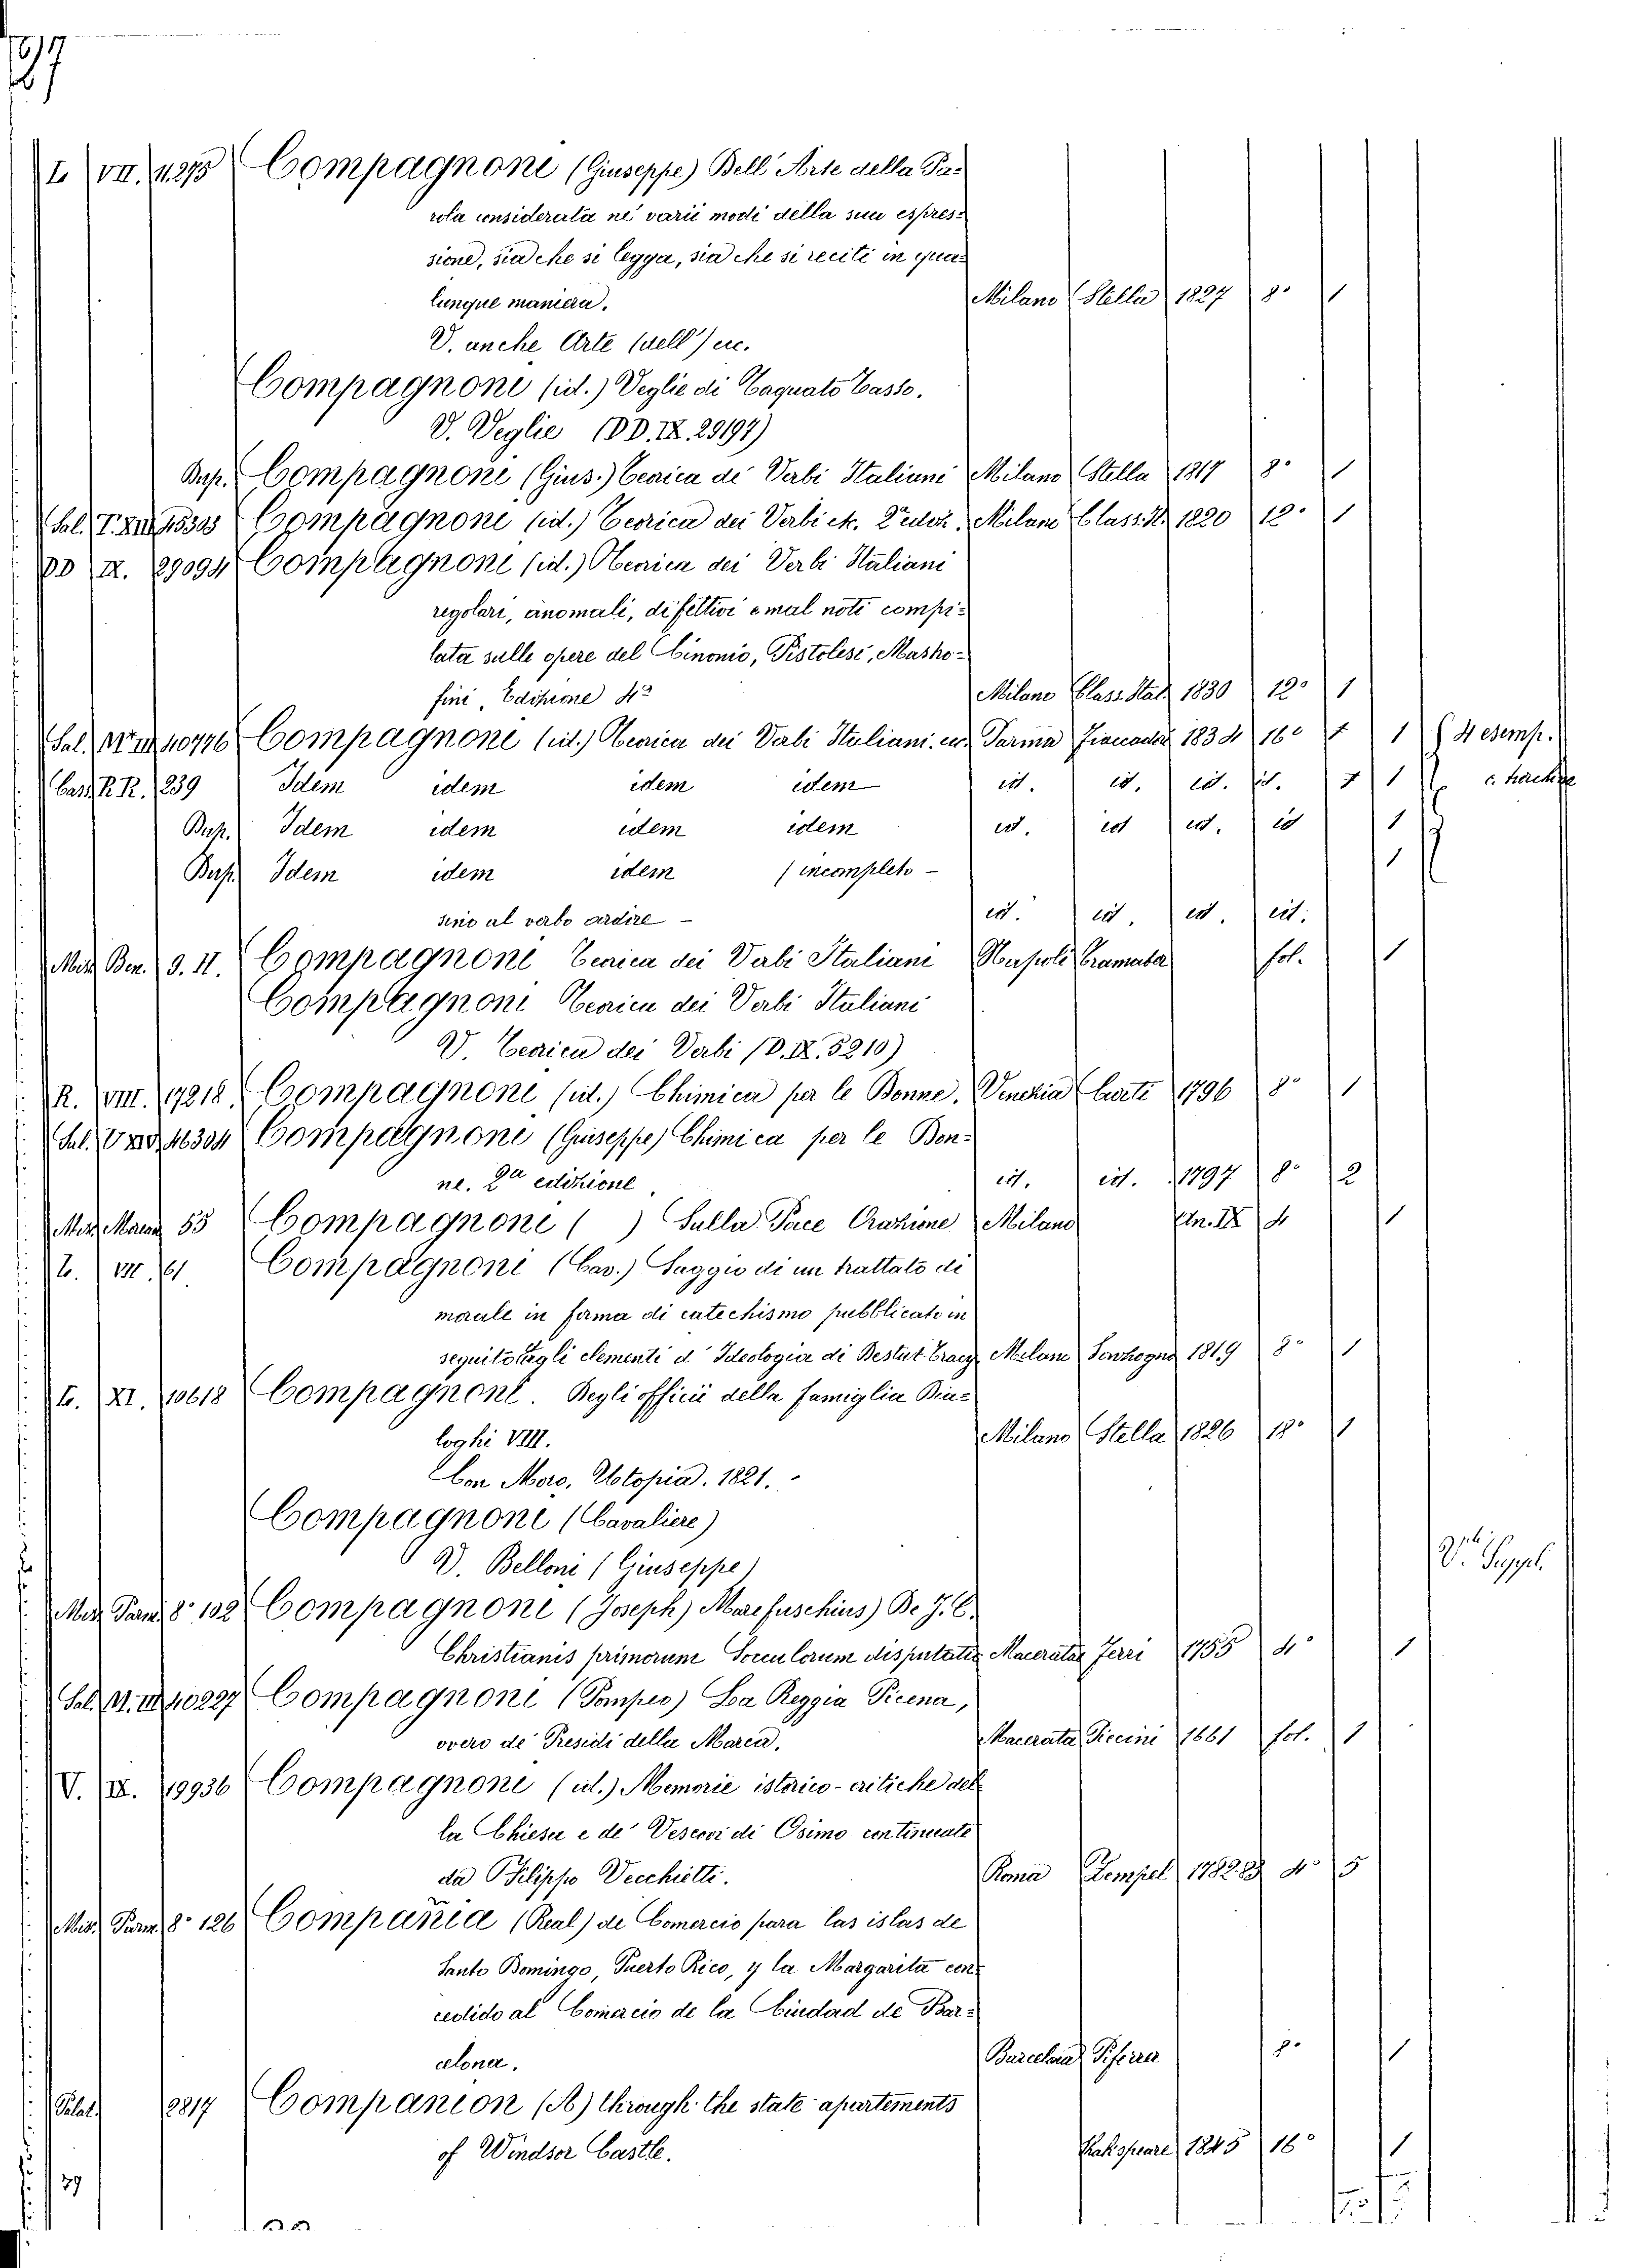 L. VII. 11275 Compagnoni (Giuseppe) Dell'Arte della Pa=
rola considerata ne' varii modi della sua espres=
sione, sia che si legga, sia che si reciti in qua=
lunque maniera. Milano Stella 1827 8° 1
V. anche Arte (dell') ec.
Compagnoni (id.) Veglie di Taquato Tasso.
V. Veglie (DD. IX. 29197)
Dup. Compagnoni (Gius.) Teorica di Verbi Italiani Milano Stella 1817 8° 1
Sal. T. XII. 45303 Compagnoni (id.) Teorica dei Verbi etc. 2ª ediz. Milano Class. It. 1820 12° 1
DD IX. 29094 Compagnoni (id.) Teorica dei Verbi Italiani
regolari, anomali, difettivi e mal noti compi=
lata sulle opere del Cinonio, Pistolesi, Mastro=
fini, Edizione 4ª Milano Class. Ital. 1830 12° 1
Sal. M. III 40776 Compagnoni (id.) Teorica dei Verbi Italiani. ec. Parma Fiaccadori 1834 16° 1 1 4 esemp.
Cass. R. R. 239 Idem idem idem idem id. id. id. id. 1 1
Dup. Idem idem idem idem id. id id. id 1
Dup. Idem idem idem (incompleto –
sino al verbo ardire – id. id. id. id. 1
Misc. Ben. 9. II. Compagnoni Teorica dei Verbi Italiani Napoli Tramater fol. 1
Compagnoni Teorica dei Verbi Italiani
V. Teorica dei Verbi (D. IX. 5210)
R. VIII. 17218 Compagnoni (id.) Chimica per le Donne. Venezia Curti 1796 8° 1
Sal. 46304 Compagnoni (Giuseppe) Chimica per le Don=
ne. 2ª edizione id. id. 1797 8° 2
Misc. 55 Compagnoni ( ) Sulla Pace Orazione Milano An. IX 4 1
L. VII. 61 Compagnoni (Cav.) Saggio di un trattato di
morale in forma di catechismo pubblicato in
seguito agli elementi d'Ideologia di Destut-Tracy Milano Sonzogno 1819 8° 1
L. XI. 10618 Compagnoni. Degli officii della famiglia Dia=
loghi VIII. Milano Stella 1826 18° 1
Con Moro, Utopia. 1821.
Compagnoni (Cavaliere)
V. Belloni (Giuseppe) V. Suppl.
Misc. Parm. 8° 102 Compagnoni (Joseph) Marefuschius) De J. C.
Christianis primorum Soeculorum disputatio Maceratae Ferri 1755 4° 1
Sal. M. III 40227 Compagnoni (Pompeo) La Reggia Picena,
overo de' Presidi della Marca. Macerata Piccini 1661 fol. 1
V. IX. 19936 Compagnoni (id.) Memorie istorico-critiche del=
la Chiesa e de' Vescovi di Osimo continuate
da Filippo Vecchietti. Roma Zempel 1782.83 4° 5
Misc. Parm. 8° 126 Compañia (Real) de Comercio para las islas de
Santo Domingo, Puerto Rico, y la Margarita con=
cedido al Comercio de la Ciudad de Bar=
celona. Barcelona Piferrer 8° 1
Palat. 2817 Companion (A) through the state apartements
of Windsor Castle. Shakspeare 1845 16° 1
39